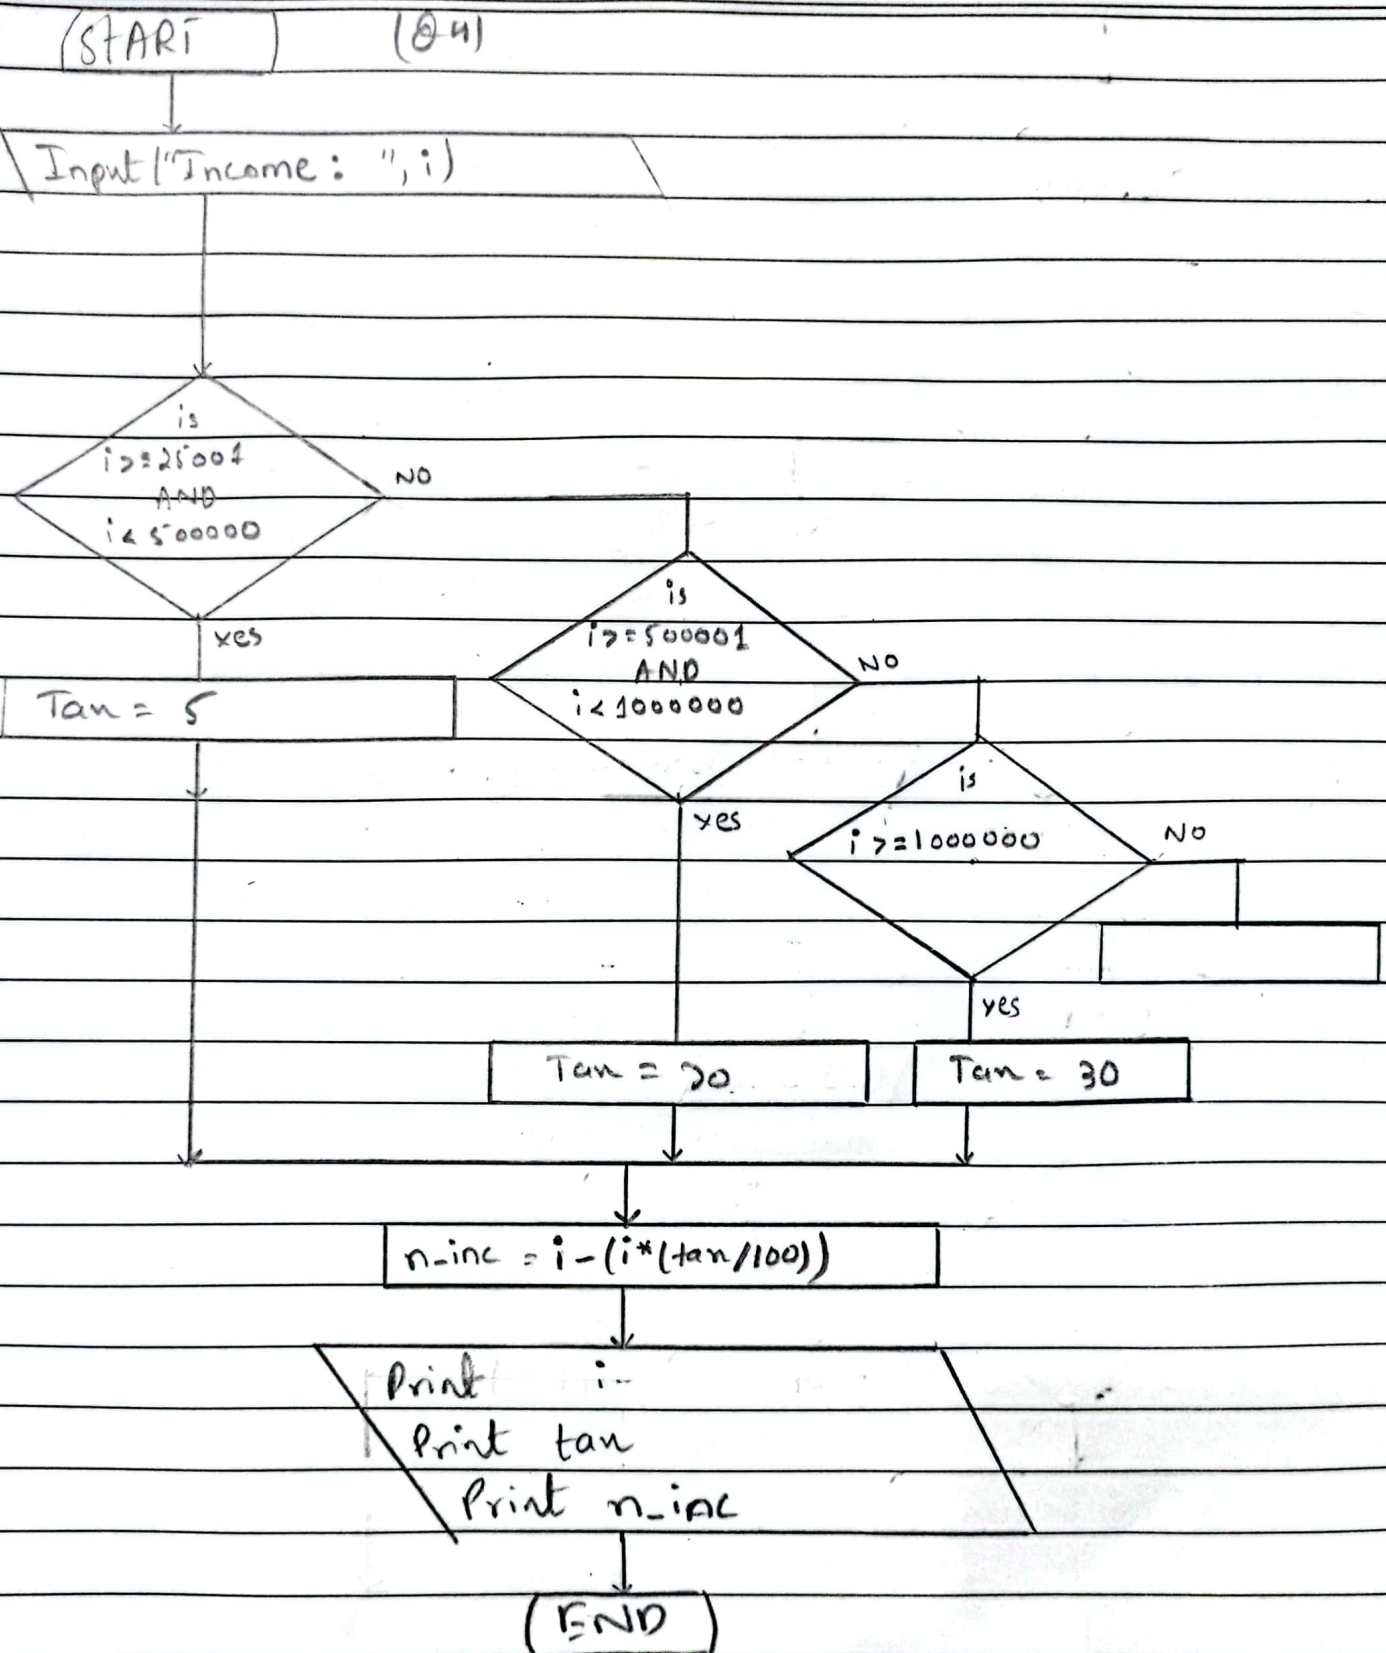 START
(Q4)
Input("Income: ", i)
is
i>=25001
AND
i<500000
NO
Yes
Tax = 5
is
i>=500001
AND
i<1000000
NO
Yes
is
i>=1000000
NO
Yes
Tax = 20
Tax = 30
n_inc = i-(i*(tax/100))
Print i
Print tax
Print n_inc
END